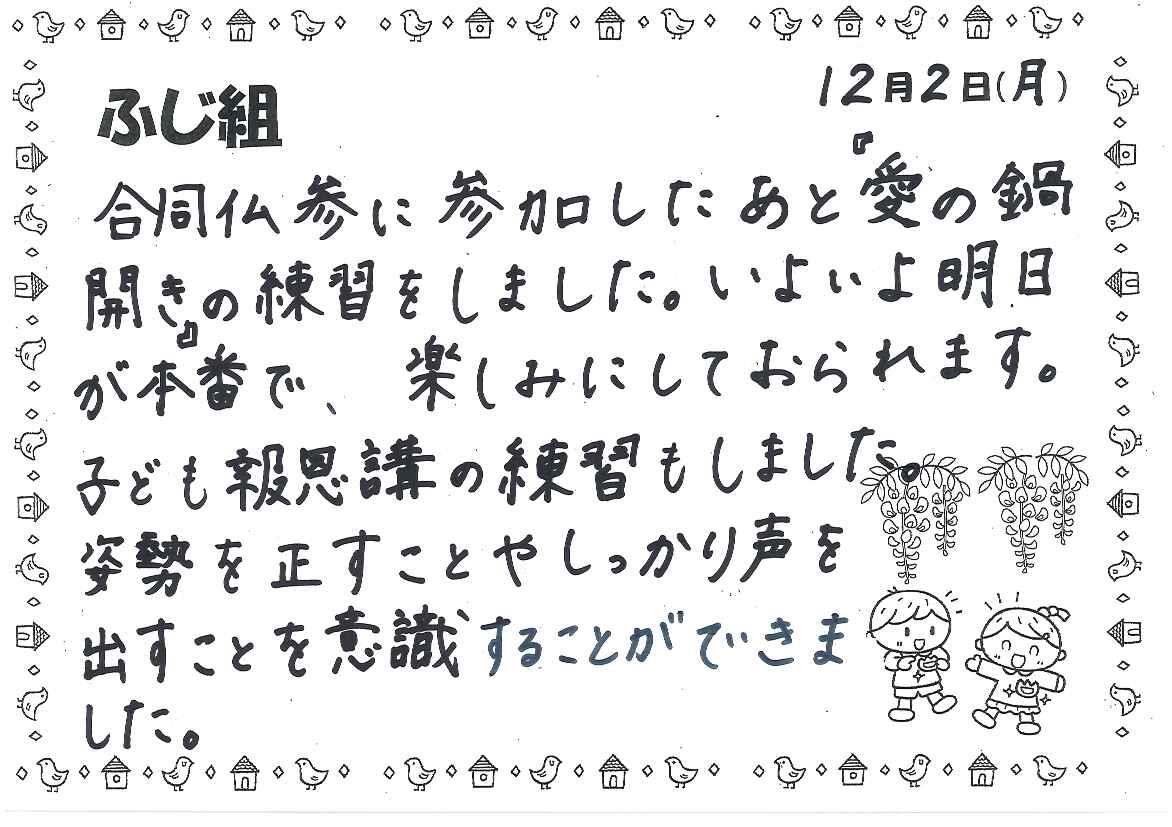 ふじ組
12月2日(月)
合同仏参に参加したあと『愛の鍋
開き』の練習をしました。いよいよ明日
が本番で、楽しみにしておられます。
子ども報恩講の練習もしました。
姿勢を正すことやしっかり声を
出すことを意識することができま
した。